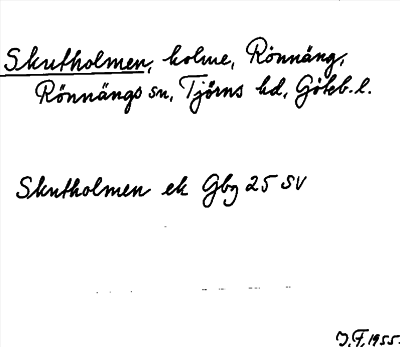 Skutholmen, holme, Rönnäng,
Rönnängs sn, Tjörns hd, Göteb. l.
Skutholmen ek Gbg 25 SV
J. F. 1955.